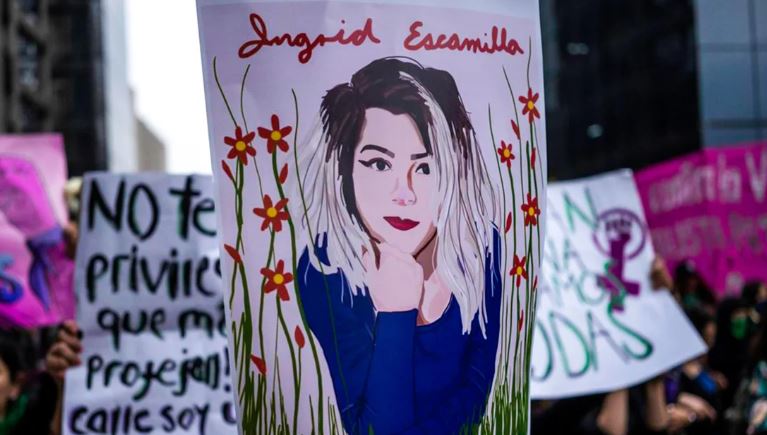 Ingrid Escamilla
NO te
privile
que m
protejan!
calle soy
AN
NA
AMOS
ODAS
la V